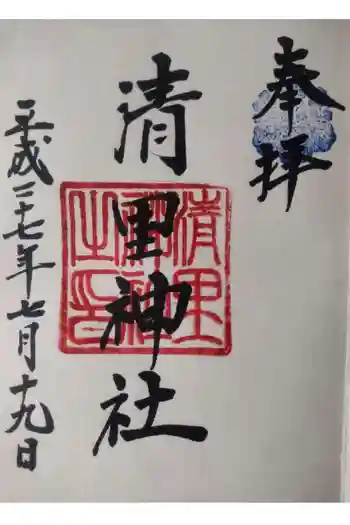 奉拝
清里神社
清里神社之印
平成二十七年七月十九日